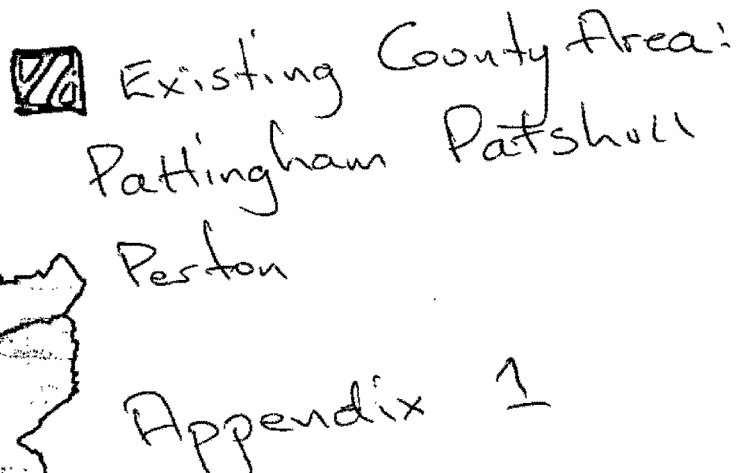 Existing County Area:
Pattingham Patshull
Perton
Appendix 1